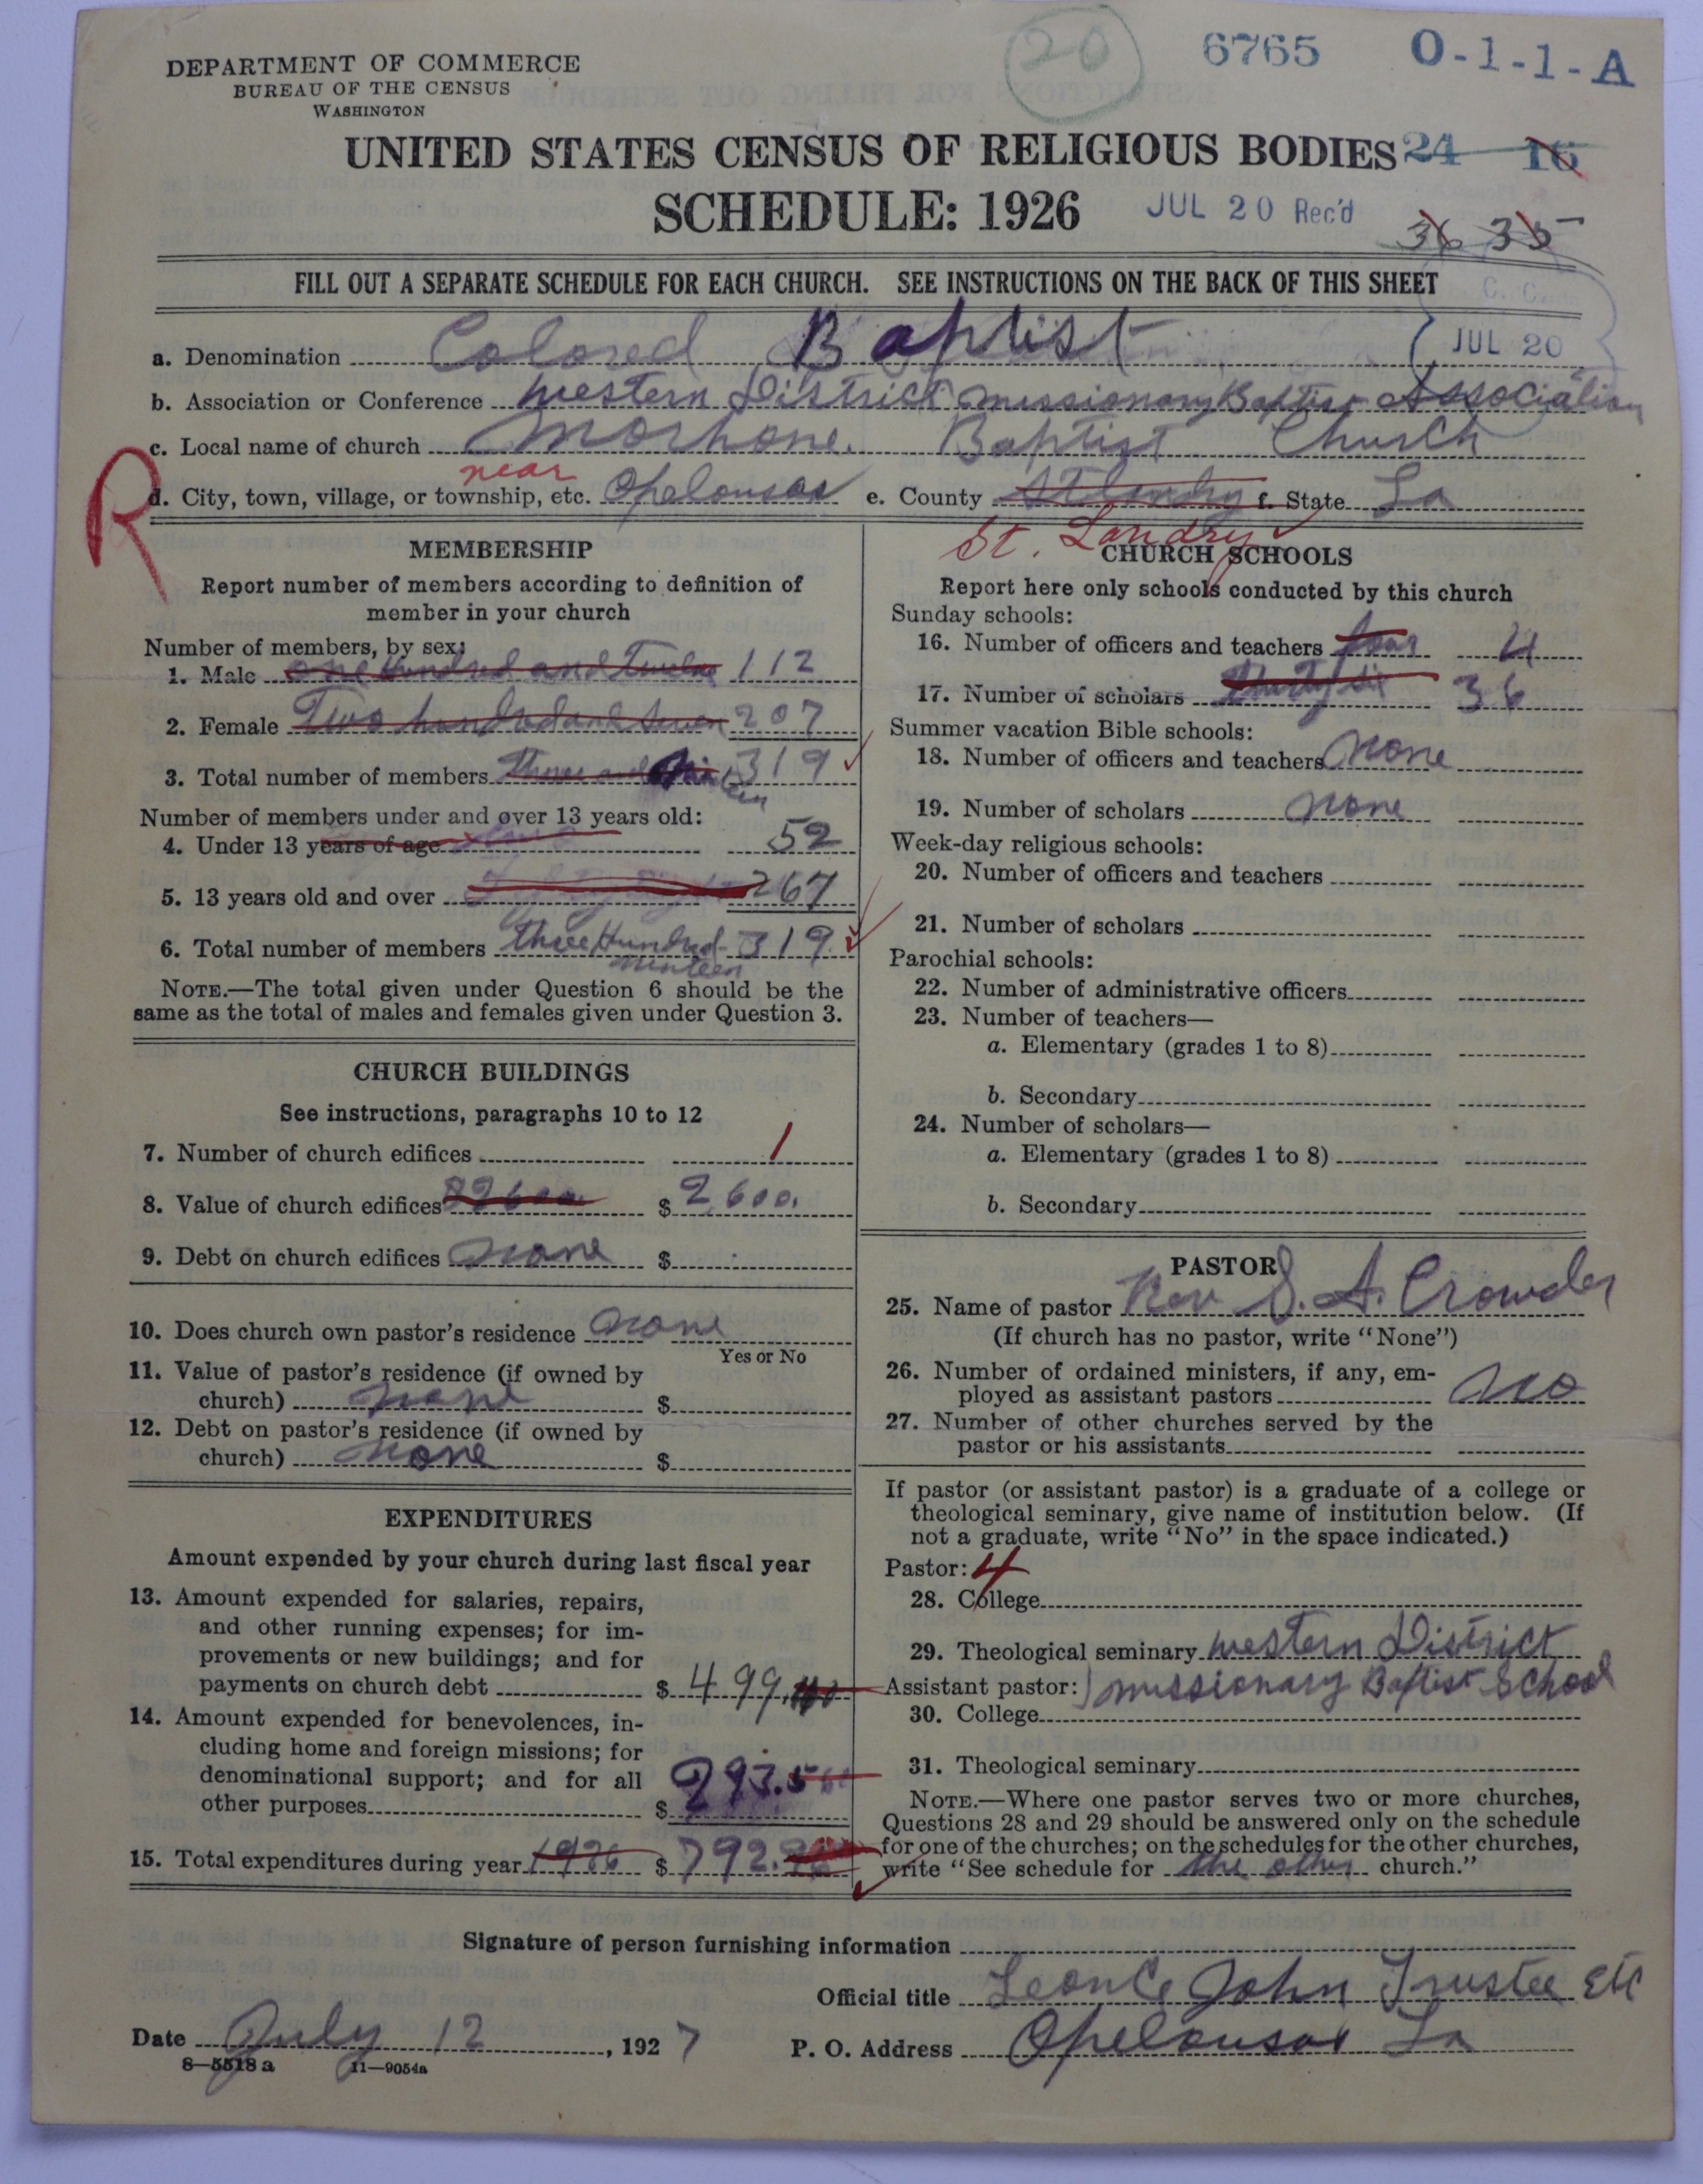 20 6765 O-1-1-A
DEPARTMENT OF COMMERCE
BUREAU OF THE CENSUS
WASHINGTON
UNITED STATES CENSUS OF RELIGIOUS BODIES 24 16
SCHEDULE: 1926 JUL 20 Rec'd
36 35
FILL OUT A SEPARATE SCHEDULE FOR EACH CHURCH. SEE INSTRUCTIONS ON THE BACK OF THIS SHEET
a. Denomination Colored Baptist JUL 20
b. Association or Conference Western District Missionary Baptist Association
c. Local name of church Morhone. Baptist Church
R
near
d. City, town, village, or township, etc. Opelousas e. County St Landry f. State La
St. Landry
MEMBERSHIP
Report number of members according to definition of
member in your church
Number of members, by sex:
1. Male one hundred and Twelve 112
2. Female Two hundred and Seven 207
3. Total number of members 319
Number of members under and over 13 years old:
4. Under 13 years of age 52
5. 13 years old and over 267
6. Total number of members three Hundred ninteen 319
NOTE.—The total given under Question 6 should be the
same as the total of males and females given under Question 3.
CHURCH BUILDINGS
See instructions, paragraphs 10 to 12
7. Number of church edifices 1
8. Value of church edifices $ 2,600.
9. Debt on church edifices none $
10. Does church own pastor's residence none
Yes or No
11. Value of pastor's residence (if owned by
church) none $
12. Debt on pastor's residence (if owned by
church) none $
EXPENDITURES
Amount expended by your church during last fiscal year
13. Amount expended for salaries, repairs,
and other running expenses; for im-
provements or new buildings; and for
payments on church debt $ 499.
14. Amount expended for benevolences, in-
cluding home and foreign missions; for
denominational support; and for all
other purposes $ 293.
15. Total expenditures during year 1926 $ 792.
CHURCH SCHOOLS
Report here only schools conducted by this church
Sunday schools:
16. Number of officers and teachers four 4
17. Number of scholars Thirty six 36
Summer vacation Bible schools:
18. Number of officers and teachers None
19. Number of scholars none
Week-day religious schools:
20. Number of officers and teachers
21. Number of scholars
Parochial schools:
22. Number of administrative officers
23. Number of teachers—
a. Elementary (grades 1 to 8)
b. Secondary
24. Number of scholars—
a. Elementary (grades 1 to 8)
b. Secondary
PASTOR
25. Name of pastor Rev S. A. Crowder
(If church has no pastor, write "None")
26. Number of ordained ministers, if any, em-
ployed as assistant pastors no
27. Number of other churches served by the
pastor or his assistants
If pastor (or assistant pastor) is a graduate of a college or
theological seminary, give name of institution below. (If
not a graduate, write "No" in the space indicated.)
Pastor: 4
28. College
29. Theological seminary Western District
Assistant pastor: missionary Baptist School
30. College
31. Theological seminary
NOTE.—Where one pastor serves two or more churches,
Questions 28 and 29 should be answered only on the schedule
for one of the churches; on the schedules for the other churches,
write "See schedule for the other church."
Signature of person furnishing information
Official title Leonce John Trustee Etc
Date July 12, 1927 P. O. Address Opelousas La
8—5518 a 11—9054a